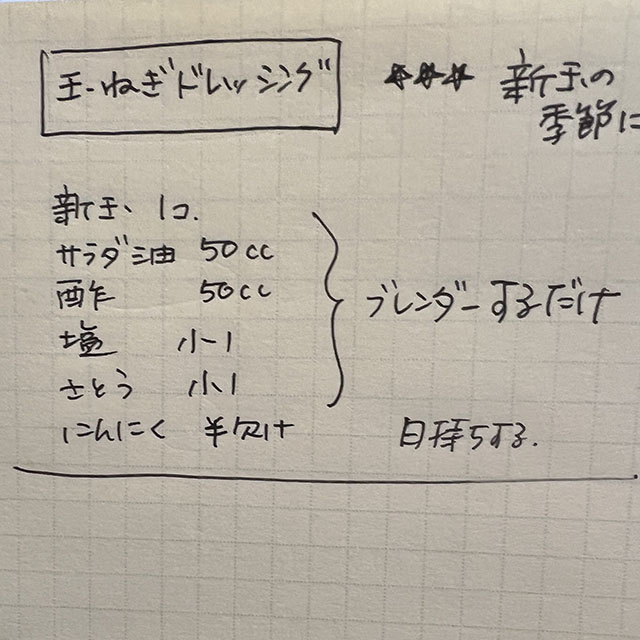 玉ねぎドレッシング
*** 新玉の
季節に
新玉 1コ.
サラダ油 50cc
酢 50cc
塩 小1
さとう 小1
にんにく 半欠け
ブレンダーするだけ
日持ちする.